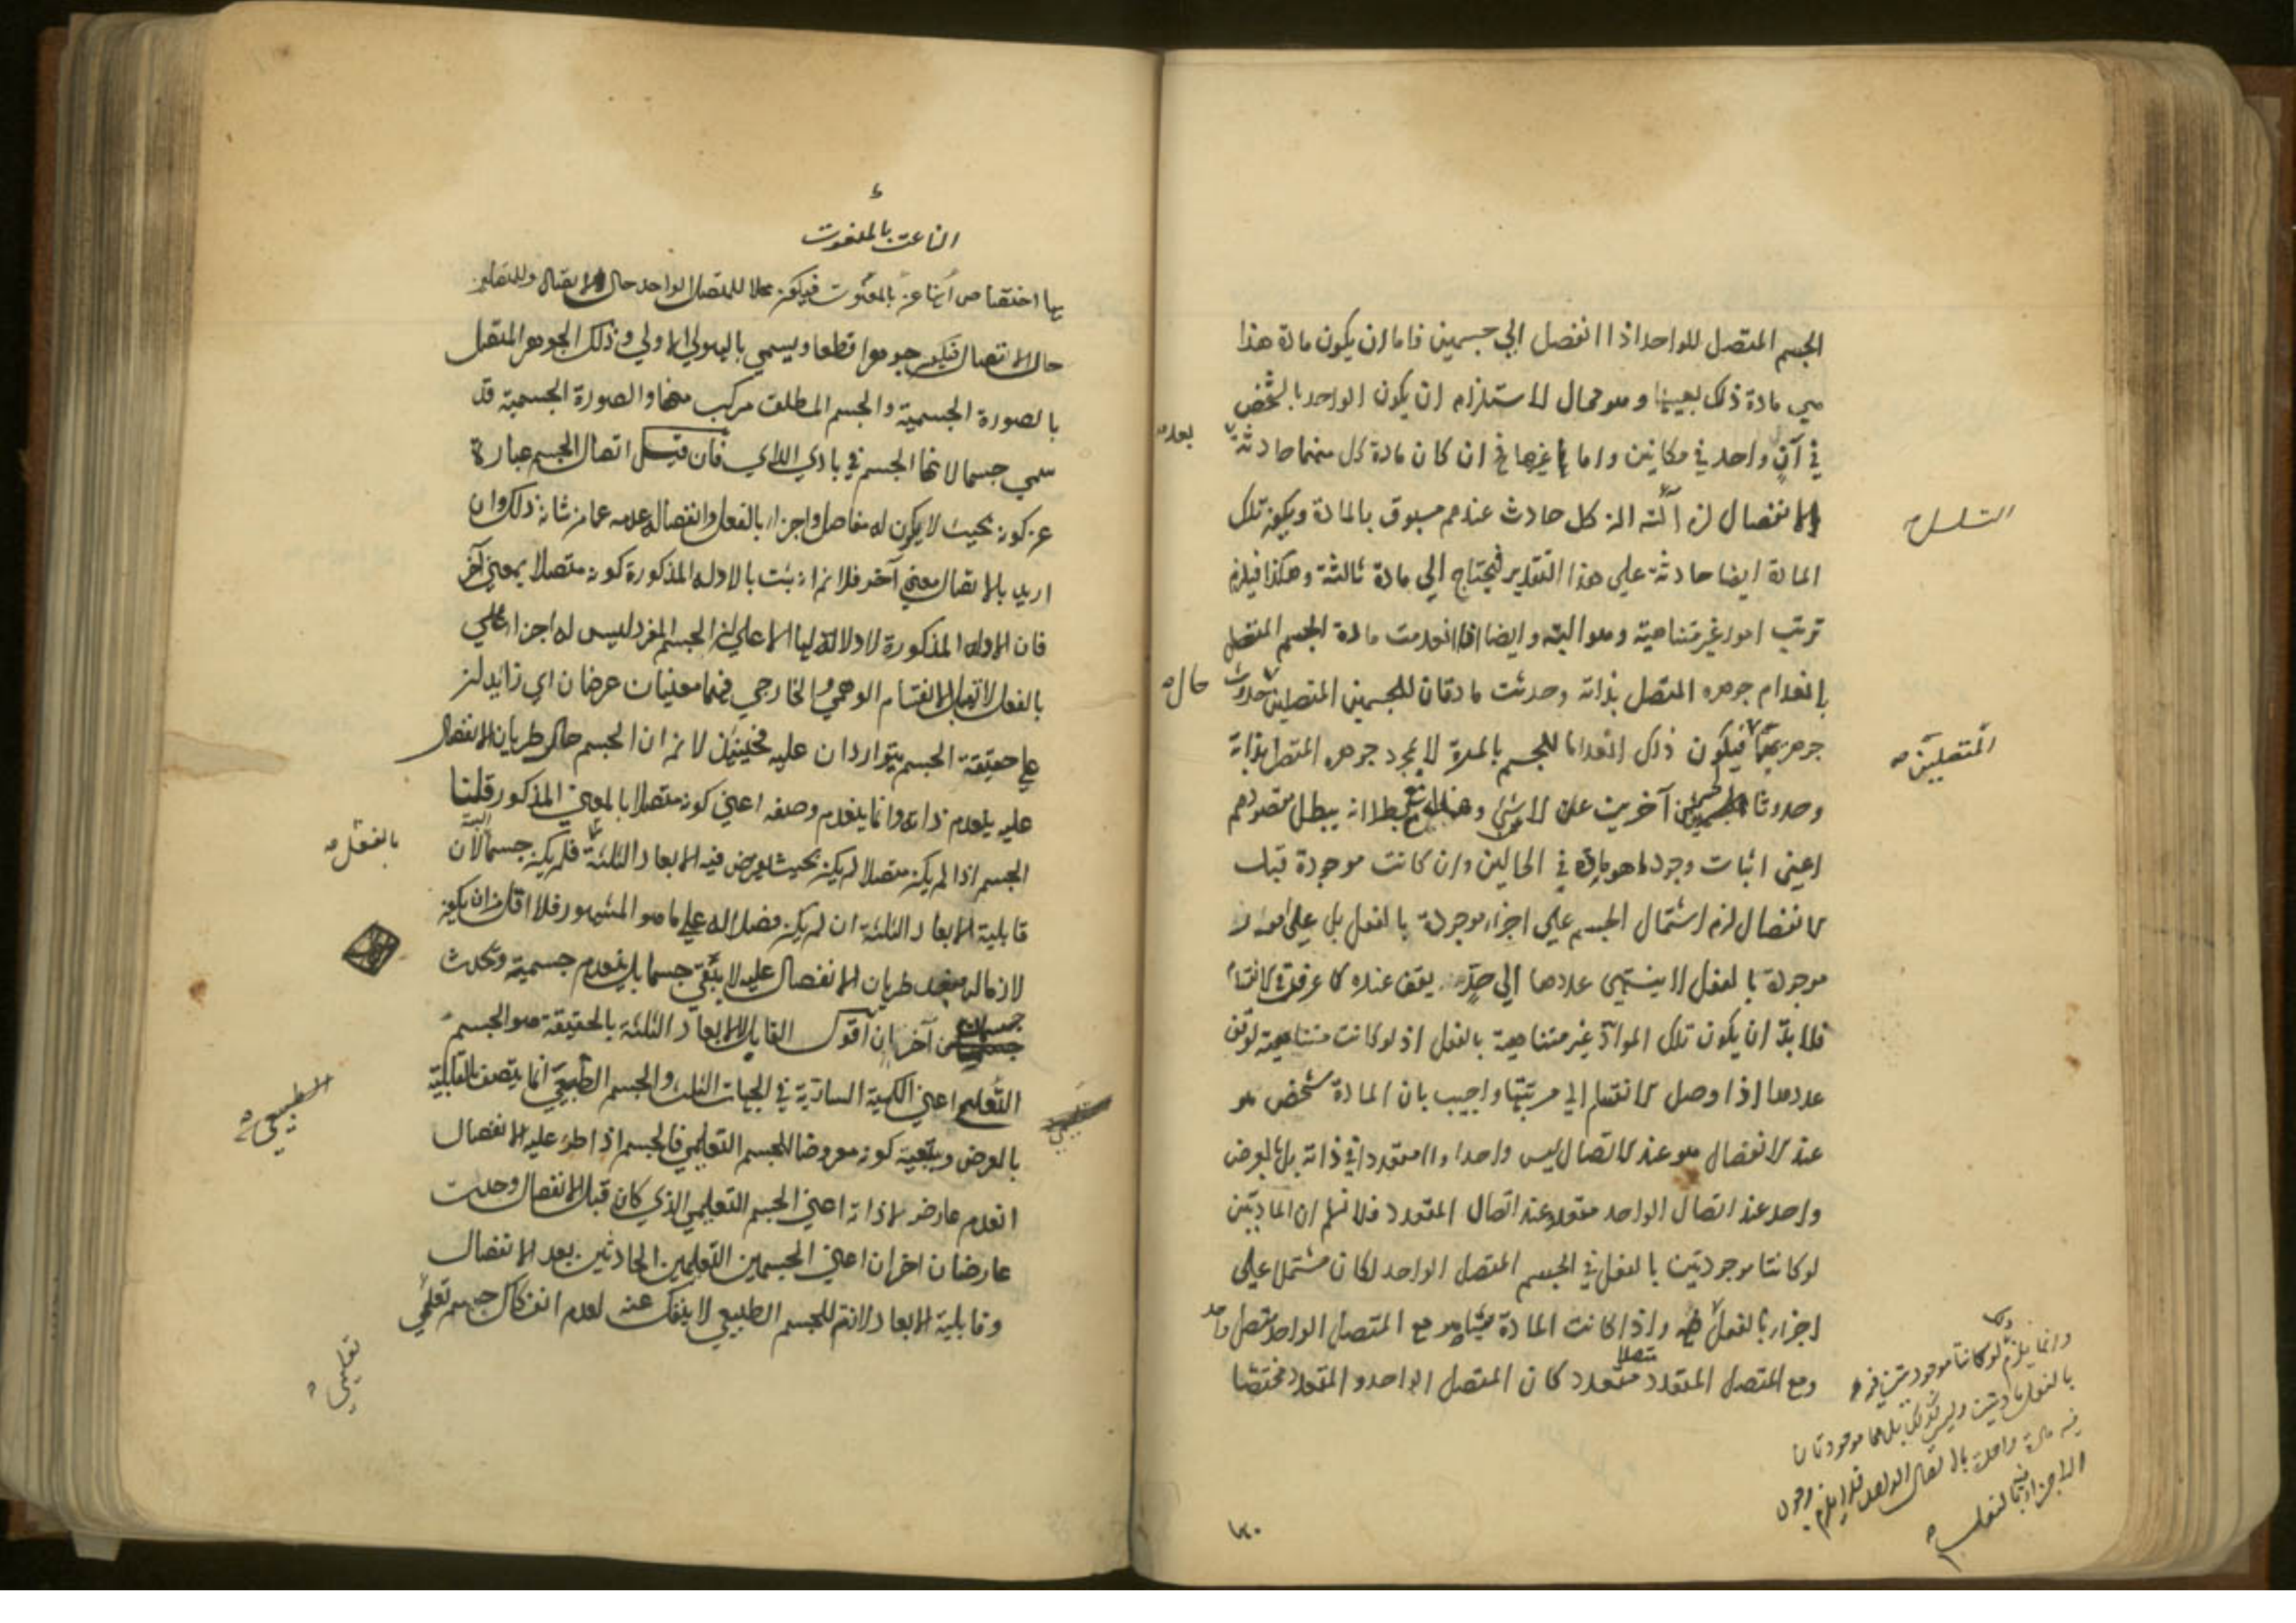 الجسم المتصل الواحد اذا انفصل الي جسمين فاما ان يكون مادة هذا
هي مادة ذلك بعينها وهو محال لاستلزام ان يكون الواحد بالشخص
في آن واحد في مكانين واما غيرها فح ان كان مادة كل منهما حادثة
بعد
الانفصال لزم التسلسل لان كل حادث عندهم مسبوق بالمادة ويكون تلك
التسلسل
المادة ايضا حادثة علي هذا التقدير فيحتاج الي مادة ثالثة وهكذا فيلزم
ترتب امور غير متناهية وهو البتة وايضا اذا انعدمت مادة الجسم المتصل
بانعدام جوهره المتصل بذاته وحدثت مادتان للجسمين المتصلين حدوث
حال
جوهريهما فيكون ذلك انعداما للجسم بالمرة لا بمجرد جوهره المتصل بذاته
المتصلين
وحدوثا لجسمين آخرين عن لا شي وهذا مع بطلانه يبطل مقصودهم
اعني اثبات وجود ما هو باق في الحالين وان كانت موجودة قبل
الانفصال لزم اشتمال الجسم علي اجزاء موجودة بالفعل بل علي مواد
موجودة بالفعل لا ينتهي عددها الي حد يقف عنده كما عرفت في الانقسام
فلا بد ان يكون تلك المواد غير متناهية بالفعل اذ لو كانت متناهية لوقف
عددها اذا وصل الانقسام الي مرتبتها واجيب بان المادة شخص هو
عند الانفصال هو عند الاتصال ليس واحدا ولا متعددا في ذاته بل بالعرض
واحد عند اتصال الواحد متعدد عند اتصال المتعدد فلا نسلم ان المادتين
لو كانتا موجودتين بالفعل في الجسم المتصل الواحد لكان مشتملا علي
اجزاء بالفعل واذا كانت المادة مع المتصل الواحد متصل واحد
ومع المتصل المتعدد متصلا متعدد كان المتصل الواحد والمتعدد مختصا
وانما يلزم لو كانتا موجودتين فيه
بالفعل مادتين وليس كذلك بل هما موجودتان
فيه مادة واحدة بالاتصال الواحد فلا يلزم وجود
الاجزاء فيه بالفعل
الناعت بالمنعوت
بها اختصاص الناعت بالمنعوت فيكون محلا للمتصل الواحد حال الاتصال وللمتصلين
حال الانفصال فيكون جوهرا قطعا ويسمي بالهيولي الاولي وذلك الجوهر المتصل
بالصورة الجسمية والجسم المطلق مركب منهما والصورة الجسمية قد
سمي جسما لانها الجسم في بادي الراي فان قيل اتصال الجسم عبارة
عن كونه بحيث لا يكون له مفاصل واجزاء بالفعل وانفصاله عدمه عما من شانه ذلك وان
اريد بالاتصال معني آخر فلا نم انه يثبت بالادلة المذكورة كونه متصلا بمعني آخر
فان الادلة المذكورة لا دلالة لها الا علي ان الجسم المفرد ليس له اجزاء علي
بالفعل لا قبل الانقسام الوهمي والخارجي فهما معنيان عرضان اي زايد ان
علي حقيقة الجسم يتواردان عليه فحينئذ لا نم ان الجسم حال طريان الانفصال
عليه ينعدم ذاته وانما ينعدم وصفه اعني كونه متصلا بالمعني المذكور قلنا
الجسم اذا لم يكن متصلا لم يكن بحيث يعرض فيه الابعاد الثلثة فلم يكن جسما لان
بالفعل
قابلية الابعاد الثلثة ان لم يكن فصلا له علي ما هو المشهور فلا اقل من ان يكون
لازما له فبعد طريان الانفصال عليه لا يبقي جسما بل ينعدم جسمية وتحدث
جسمان آخران اقول القابل للابعاد الثلثة بالحقيقة هو الجسم
التعليمي اعني الكمية السارية في الجهات الثلث والجسم الطبيعي انما يتصف بالقابلية
الطبيعي
بالعرض وبتبعية كونه معروضا للجسم التعليمي فالجسم اذا طرء عليه الانفصال
انعدم عارض لذاته اعني الجسم التعليمي الذي كان قبل الانفصال وحدث
عارضان اخران اعني الجسمين التعليمين الحادثين بعد الانفصال
وقابلية الابعاد لازم للجسم الطبيعي لا ينفك عنه لعدم انفكاك جسم تعليمي
تعليمي